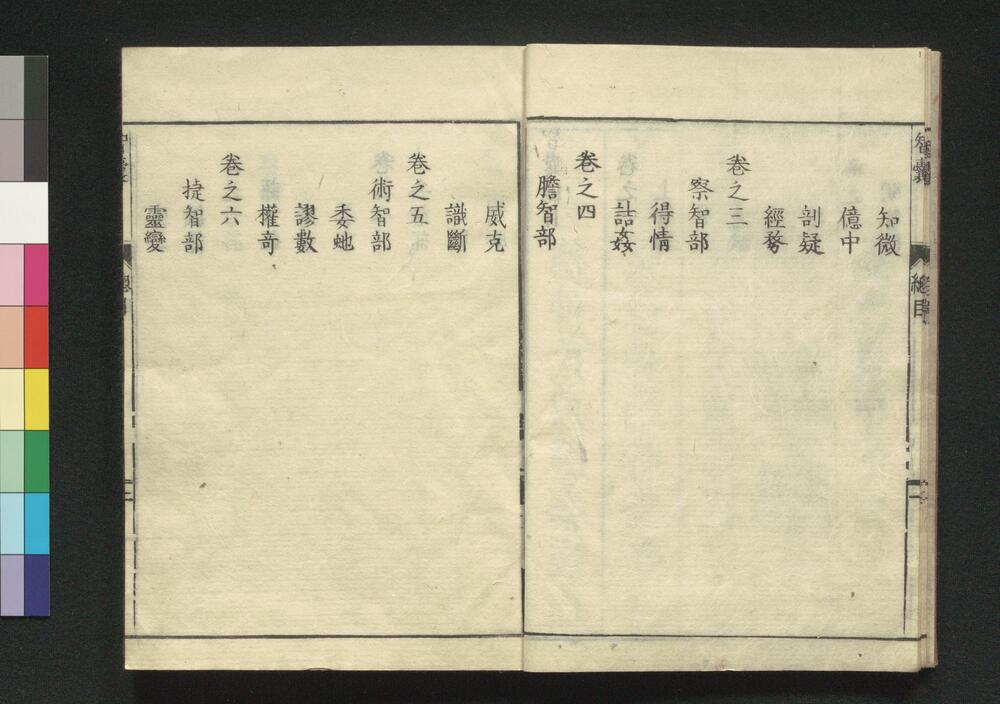 智囊
總目
知微
億中
剖疑
經務
卷之三
察智部
得情
詰姦
卷之四
膽智部
威克
識斷
卷之五
術智部
委虵
謬數
權奇
卷之六
捷智部
靈變